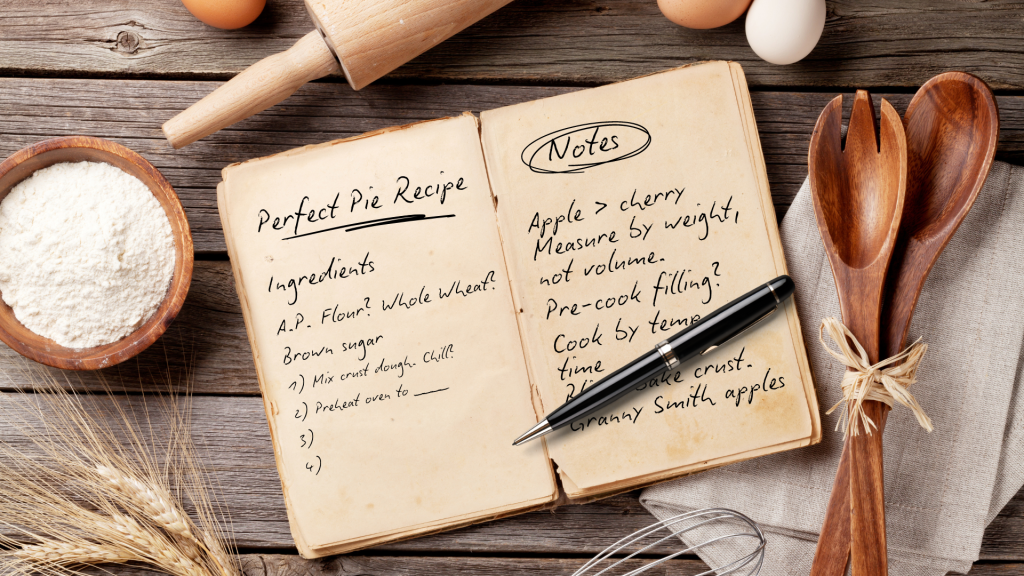 Perfect Pie Recipe
Ingredients
A.P. Flour? Whole Wheat?
Brown sugar
1) Mix crust dough. Chill?
2) Preheat oven to ___
3)
4)
Notes
Apple > cherry
Measure by weight,
not volume.
Pre-cook filling?
Cook by temp
time
bake crust.
Granny Smith apples